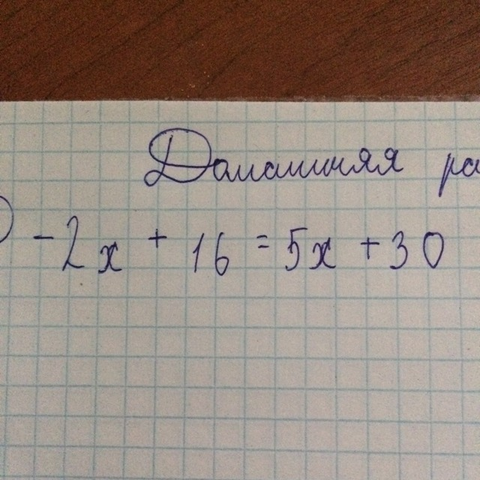 Домашняя ра
) -2x + 16 = 5x + 30